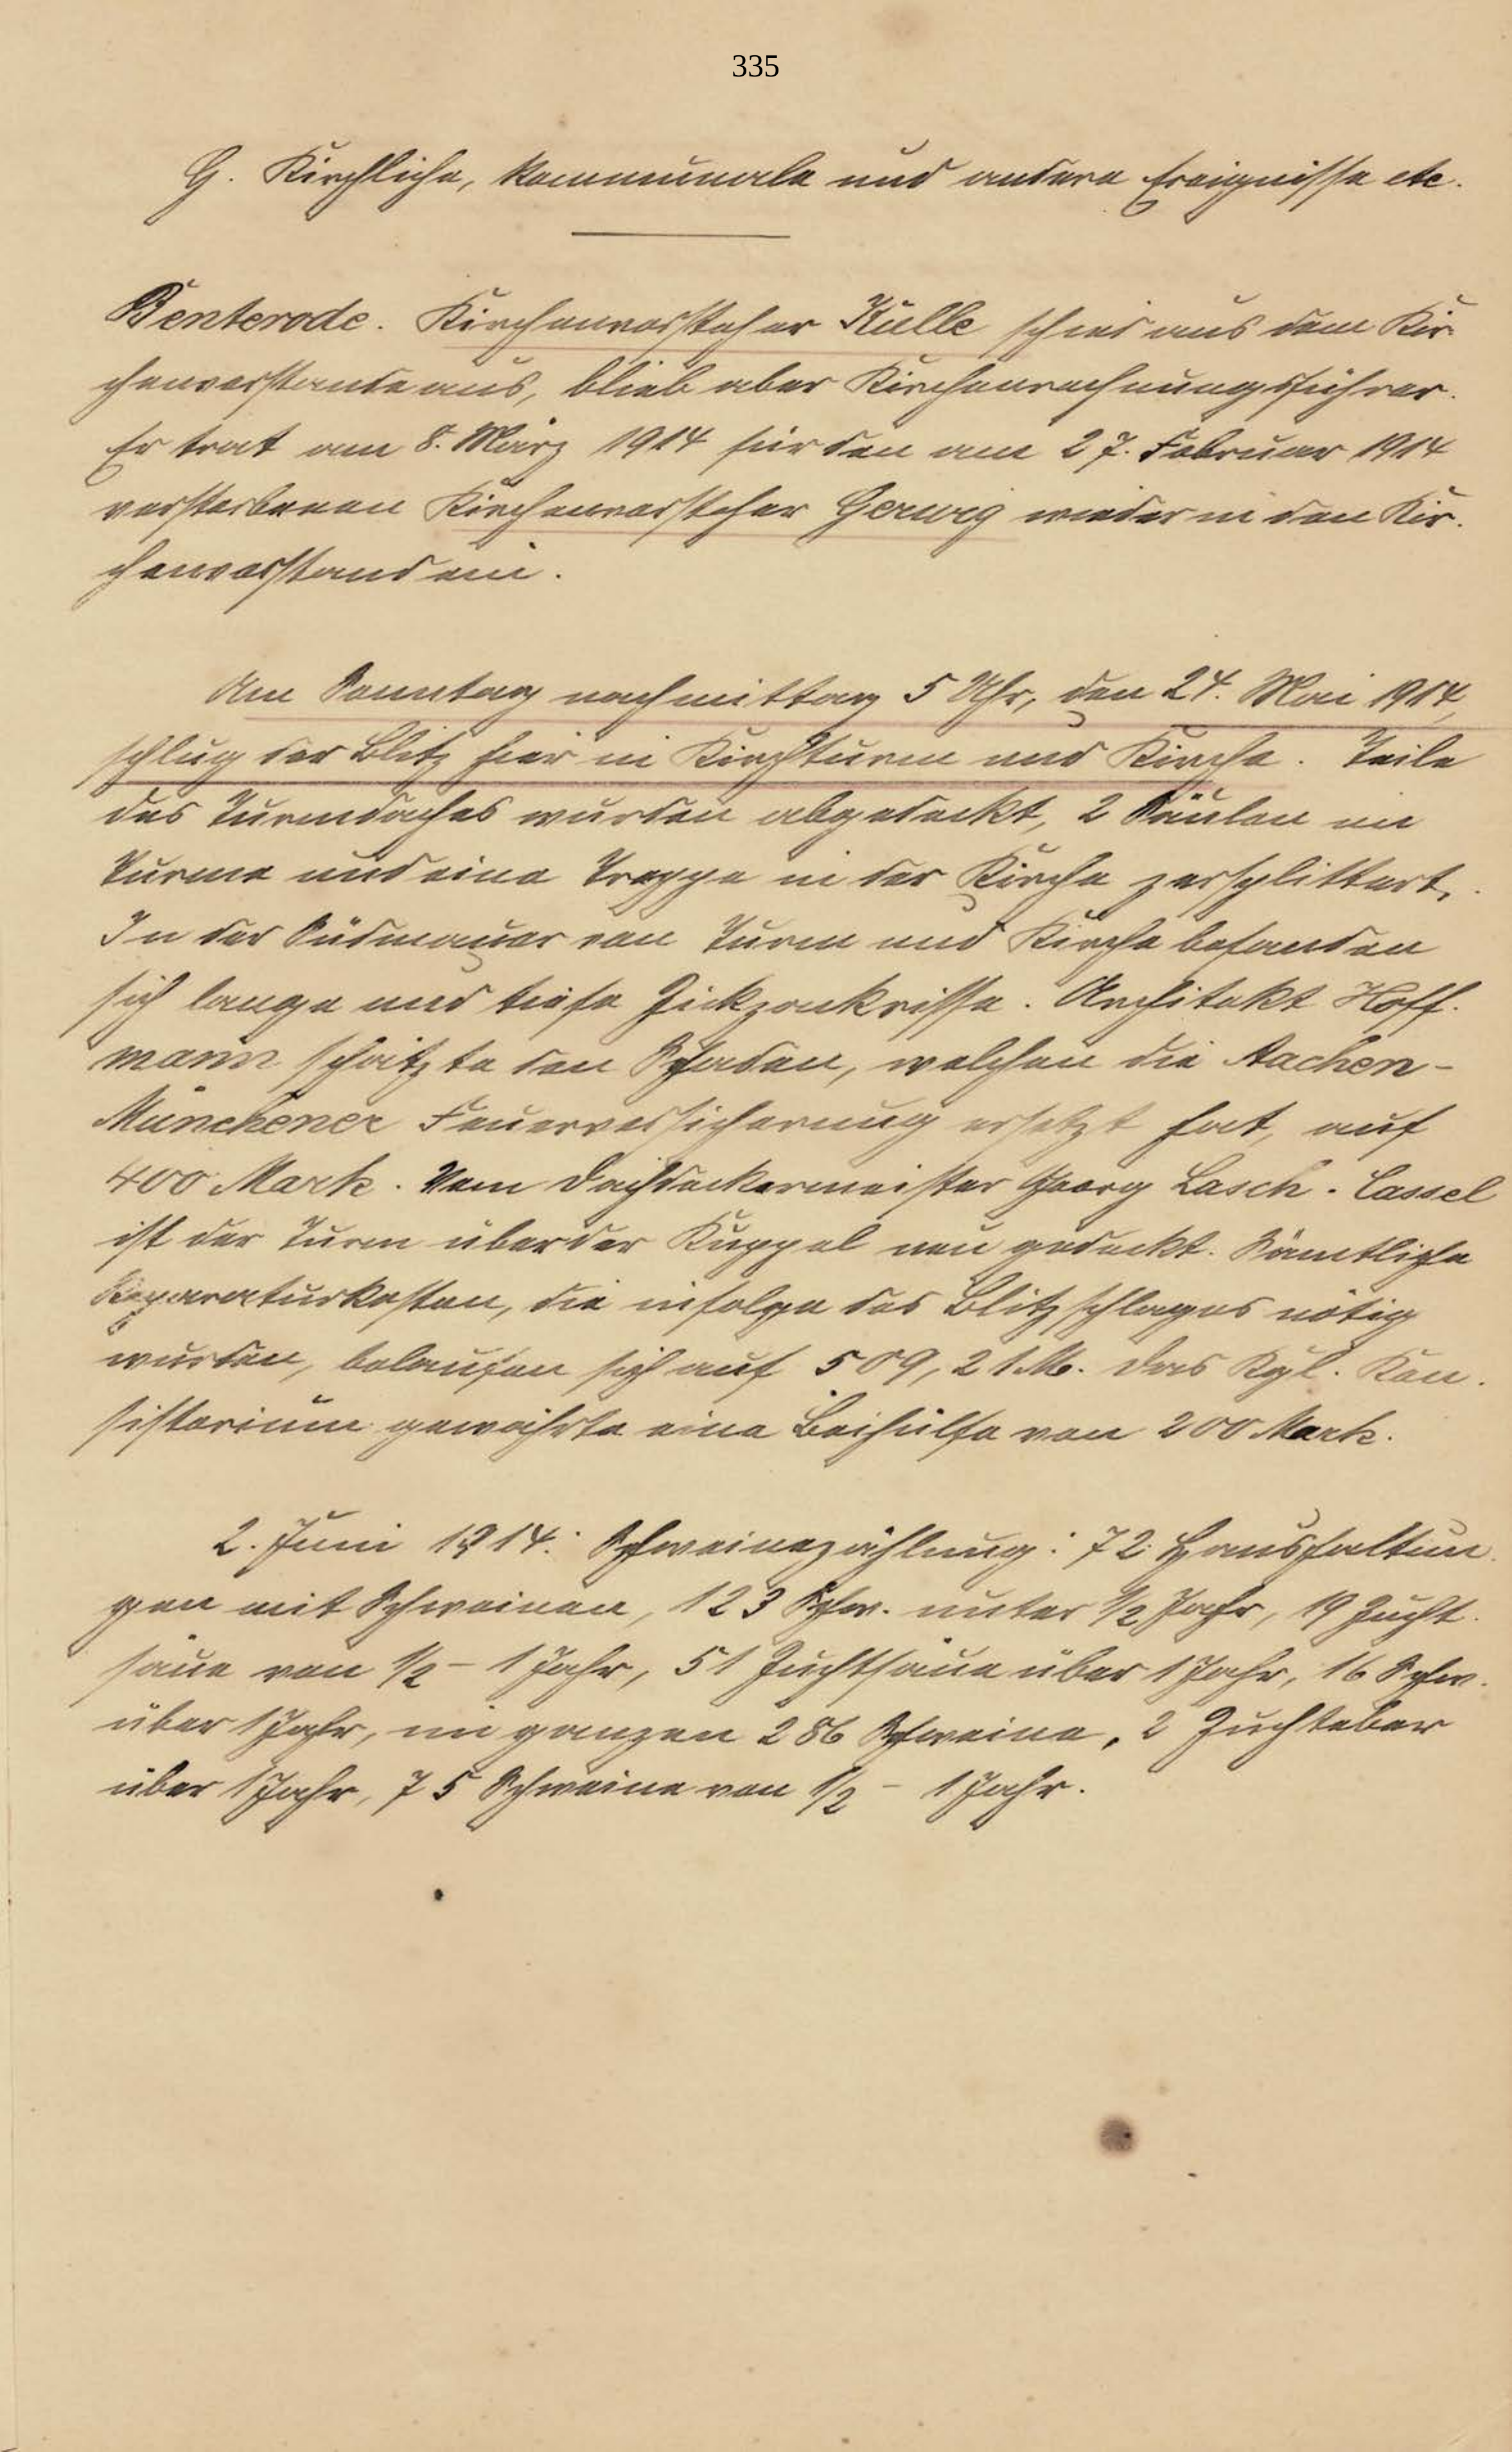 335
G. Kirchliche, kommunale und andere Ereignisse etc.
Benterode. Kirchenvorsteher Külle schied aus dem Kir-
chenvorstande aus, blieb aber Kirchenrechnungsführer.
Er trat am 8. März 1914 für den am 27. Februar 1914
verstorbenen Kirchenvorsteher Gerwig wieder in den Kir-
chenvorstand ein.
Am Sonntag nachmittag 5 Uhr, den 24. Mai 1914,
schlug der Blitz hier in Kirchturm und Kirche. Teile
des Turmdaches wurden abgedeckt, 2 Säulen im
Turme und eine Treppe in der Kirche zersplittert.
In der Südmauer von Turm und Kirche befanden
sich lange und tiefe Zickzackrisse. Architekt Hoff-
mann schätzte den Schaden, welchen die Aachen-
Münchener Feuerversicherung ersetzt hat, auf
400 Mark. Vom Dachdeckermeister Georg Lasch-Cassel
ist der Turm über der Kuppel neu gedeckt. Sämtliche
Reparaturkosten, die infolge des Blitzschlages nötig
wurden, belaufen sich auf 509,21 M. Das Kgl. Kon-
sistorium gewährte eine Beihülfe von 200 Mark.
2. Juni 1914: Schweinezählung: 72 Haushaltun-
gen mit Schweinen, 123 Schw. unter 1/2 Jahr, 19 Zucht-
säue von 1/2 - 1 Jahr, 51 Zuchtsäue über 1 Jahr, 16 Schw.
über 1 Jahr, im ganzen 286 Schweine, 2 Zuchteber
über 1 Jahr, 75 Schweine von 1/2 - 1 Jahr.